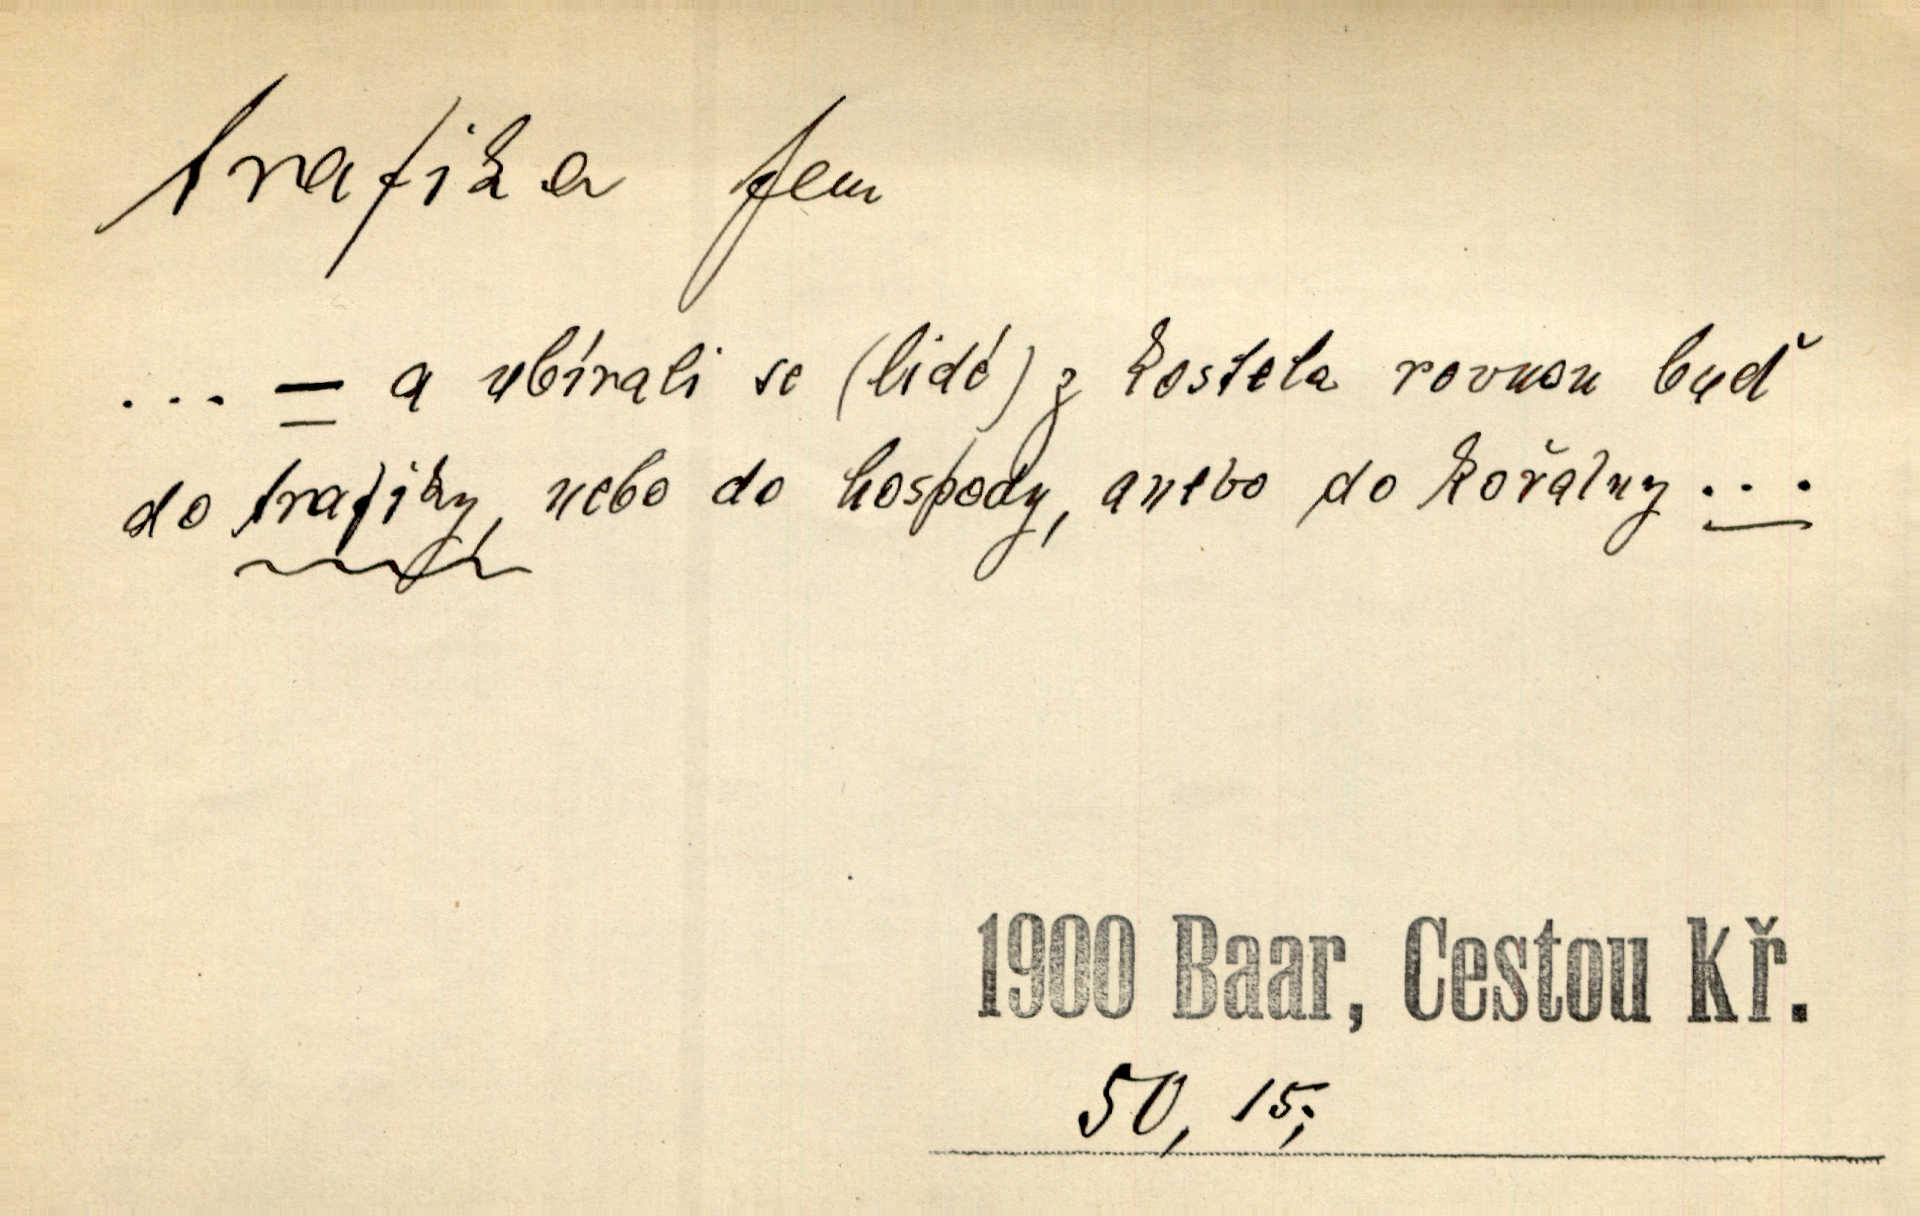 trafika fem
... — a ubírali se (lidé) z kostela rovnou buď
do trafiky, nebo do hospody, anebo do kořalny ...
1900 Baar, Cestou kř.
50, 15;